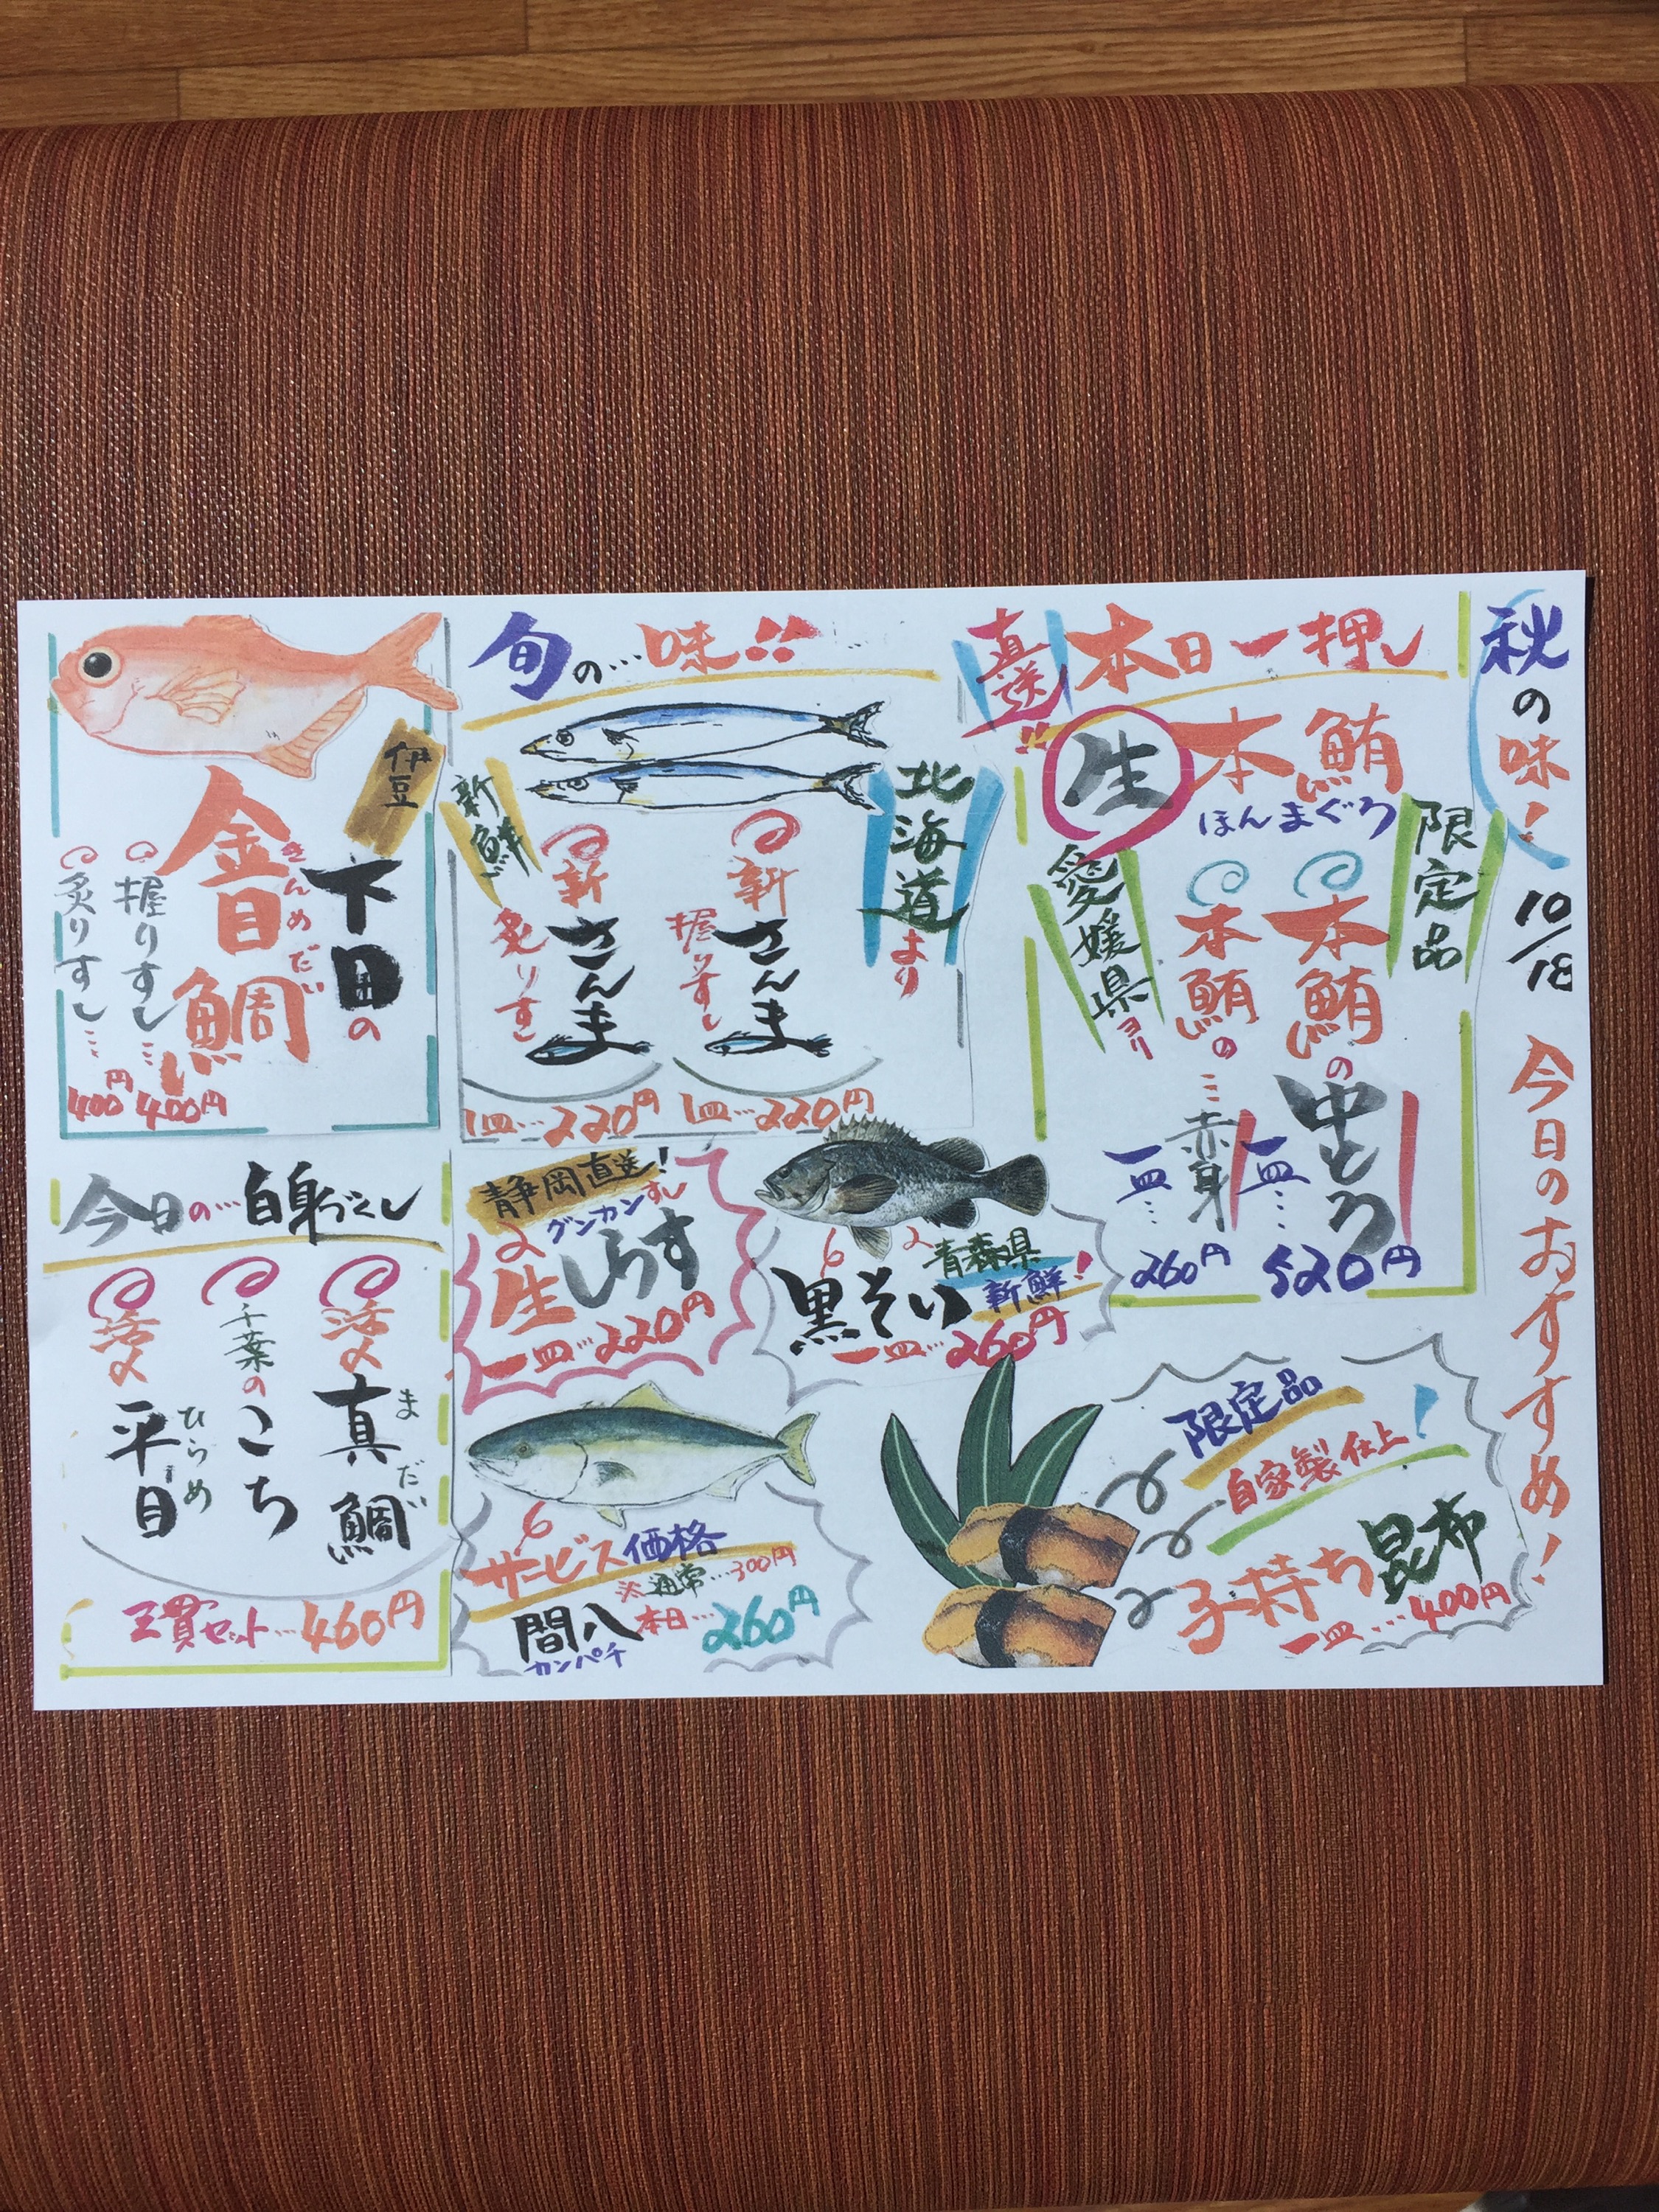 秋の味!
10/18
今日のおすすめ!
直送!!
本日一押し
生
本鮪
ほんまぐろ
限定品
愛媛県ヨリ
本鮪の中とろ
一皿…520円
本鮪の…赤身
一皿…260円
旬の…味!!
新鮮
北海道より
新さんま
握りすし
一皿…220円
新さんま
炙りすし
一皿…220円
伊豆
下田の
金目鯛
きんめだい
握りすし…400円
炙りすし…400円
今日の…白身づくし
活〆
真鯛
まだい
千葉の
こち
活〆
平目
ひらめ
三貫セット…460円
静岡直送!
グンカンすし
生しらす
一皿…220円
青森県
新鮮!
黒そい
一皿…260円
サービス価格
※通常…300円
間八
カンパチ
本日…260円
限定品
自家製仕上!
子持ち昆布
一皿…400円